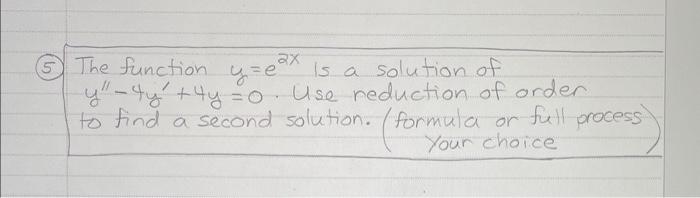 ⑤ The function y=e^{2x} is a solution of
y''-4y'+4y=0. Use reduction of order
to find a second solution. (formula or full process
Your choice)